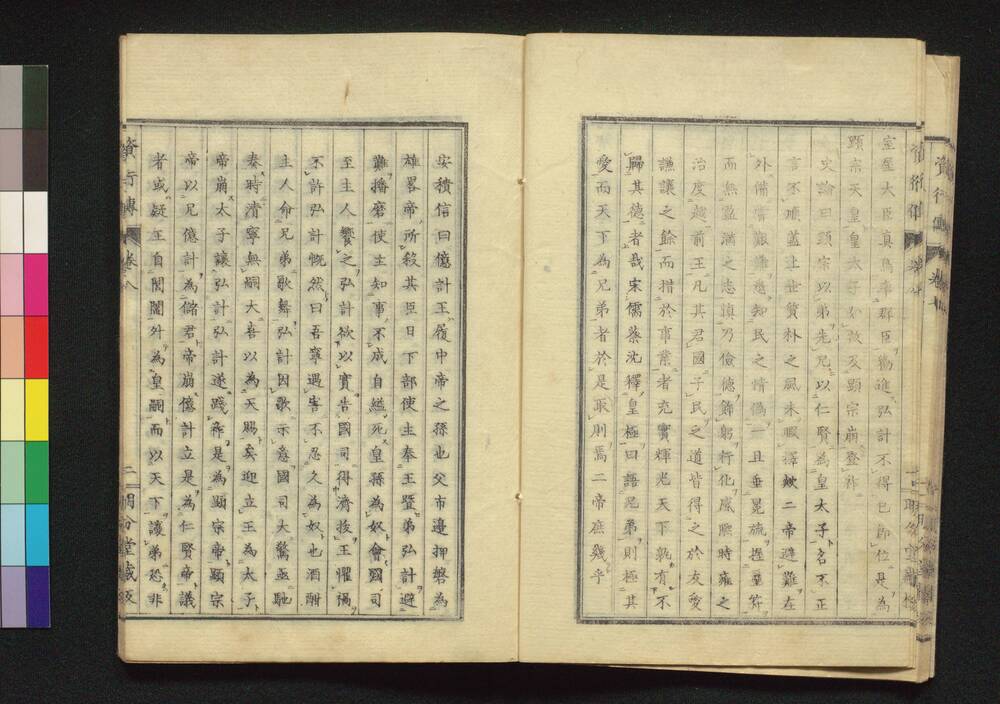 室屋大臣真鳥率群臣勸進弘計不得已即位是為
顯宗天皇皇太子如故及顯宗崩登祚
史論曰顯宗以弟先兄以仁賢為皇太子名不正
言不順蓋上世質朴之風未暇擇歟二帝避難在
外備嘗艱難悉知民之情偽一旦垂冕旒握璽符
而無盈滿之志慎乃儉德飾躬行化感熙時雍之
治度越前王凡其君國子民之道皆得之於友愛
謙讓之餘而措於事業者充實輝光天下孰有不
歸其德者哉宋儒蔡沈釋皇極曰語兄弟則極其
愛而天下為兄弟者於是取則焉二帝庶幾乎
資行傳 卷八 二 明分堂藏版
安積信曰億計王履中帝之孫也父市邊押磐為
雄畧帝所殺其臣日下部使主奉王暨弟弘計避
難播磨使主知事不成自縊死皇孫為奴會國司
至主人饗之弘計欲以實告國司得濟拔王懼禍
不許弘計慨然曰吾寧遇害不忍久為奴也酒酣
主人命兄弟歌舞弘計因歌示意國司大驚亟馳
奏時清寧無嗣大喜以為天賜矣迎立王為太子
帝崩太子讓弘計弘計遂踐祚是為顯宗帝顯宗
帝以兄億計為儲君帝崩億計立是為仁賢帝議
者或疑王自閭閻外為皇嗣而以天下讓弟恐非